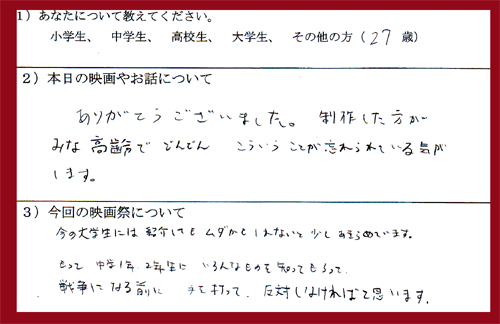 1）あなたについて教えてください。
小学生、 中学生、 高校生、 大学生、 その他の方（27歳）
2）本日の映画やお話について
ありがとうございました。 制作した方が
みな高齢で どんどん こういうことが忘れられている気が
します。
3）今回の映画祭について
今の大学生には紹介してもムダかもしれないと少しあきらめています。
もって 中学1年、2年生に いろんなものを知ってもらって、
戦争になる前に 手を打って、反対しなければと思います。